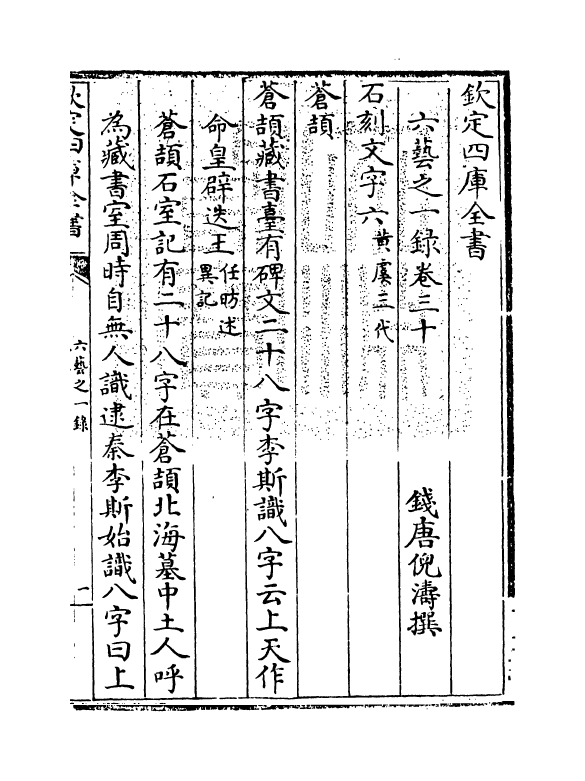 欽定四庫全書
六藝之一錄卷三十
錢唐倪濤撰
石刻文字六黃虞三代
蒼頡
蒼頡藏書臺有碑文二十八字李斯識八字云上天作
命皇辟迭王任昉述異記
蒼頡石室記有二十八字在蒼頡北海墓中土人呼
為藏書室周時自無人識逮秦李斯始識八字曰上
欽定四庫全書
六藝之一錄
一